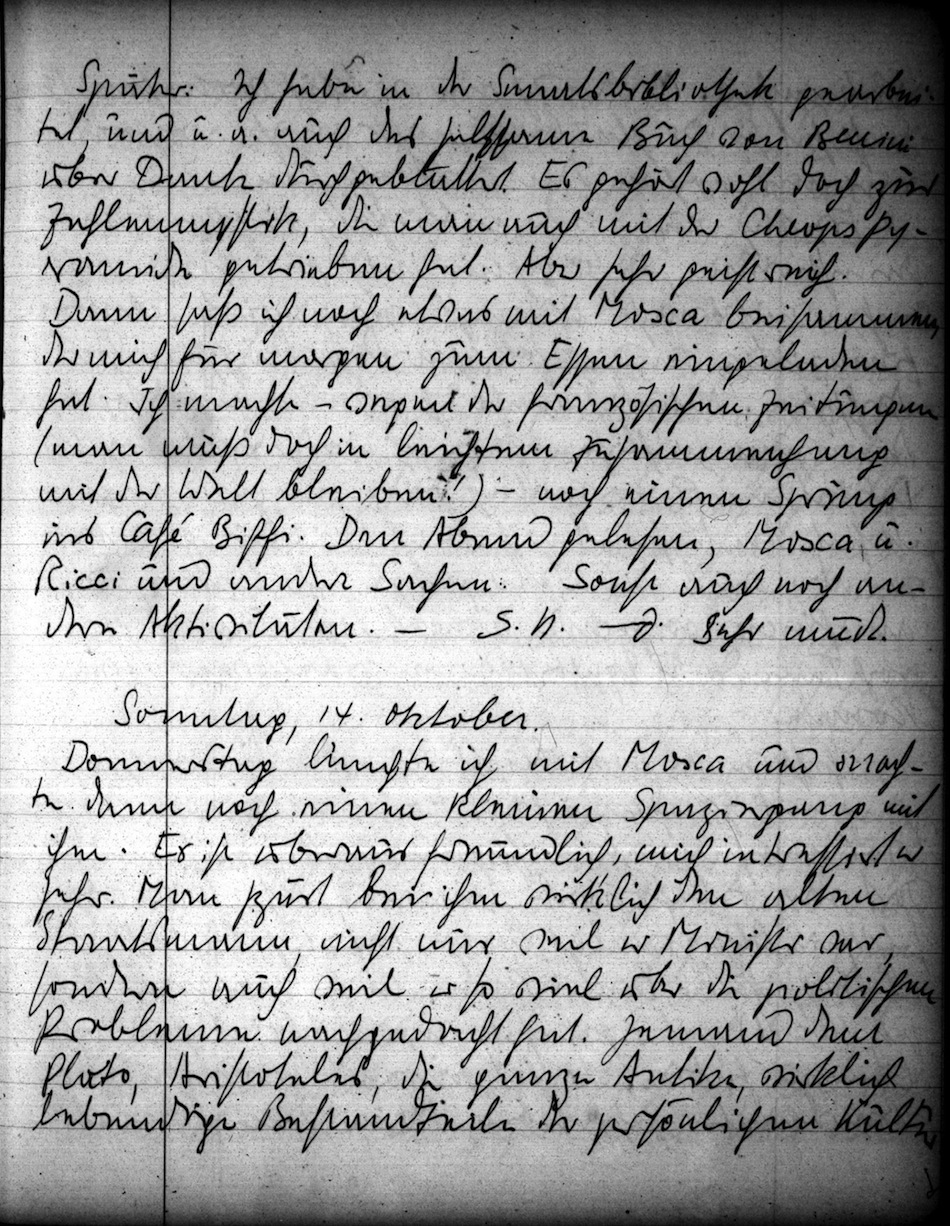 Später. Ich habe in der Senatsbibliothek gearbei-
tet, und u. a. auch das seltsame Buch von Benini
über Dante durchgeblättert. Es gehört wohl doch zur
Zahlenmystik, die man auch mit der Cheops Py-
ramide getrieben hat. Aber sehr geistreich.
Dann saß ich noch etwas mit Mosca beisammen,
der mich für morgen zum Essen eingeladen
hat. Ich machte – wegen der französischen Zeitungen
(man muß doch in leichtem Zusammenhang
mit der Welt bleiben!) – noch einen Sprung
ins Café Biffi. Den Abend gelesen, Mosca u.
Ricci und andere Sachen. Sonst auch noch an-
dere Aktivitäten. — S. H. — d. Sehr müde.
Sonntag, 14. Oktober.
Donnerstag lunchte ich mit Mosca und mach-
te dann noch einen kleinen Spaziergang mit
ihm. Er ist überaus freundlich, mich interessiert er
sehr. Man spürt bei ihm wirklich den alten
Staatsmann, nicht nur weil er Minister war,
sondern auch weil er so viel über die politischen
Probleme nachgedacht hat. Jemand dem
Plato, Aristoteles, die ganze Antike, wirklich
lebendige Bestandteile der persönlichen Kultur